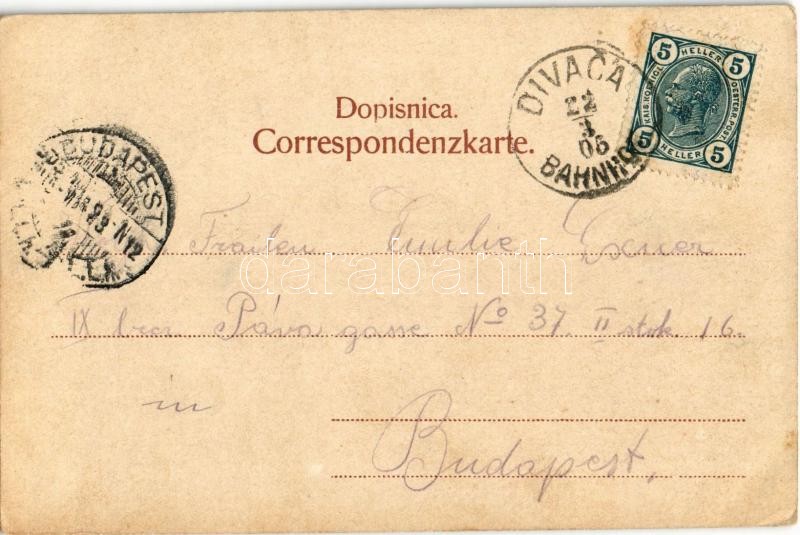 Dopisnica.
Correspondenzkarte.
DIVAČA
22
3
05
BAHNHO
5 HELLER 5
5 HELLER 5
BUDAPEST
Frailen Emilie Exner
IX brez. Páva gasse No 37. II stok 16.
in
Budapest,
darabanth